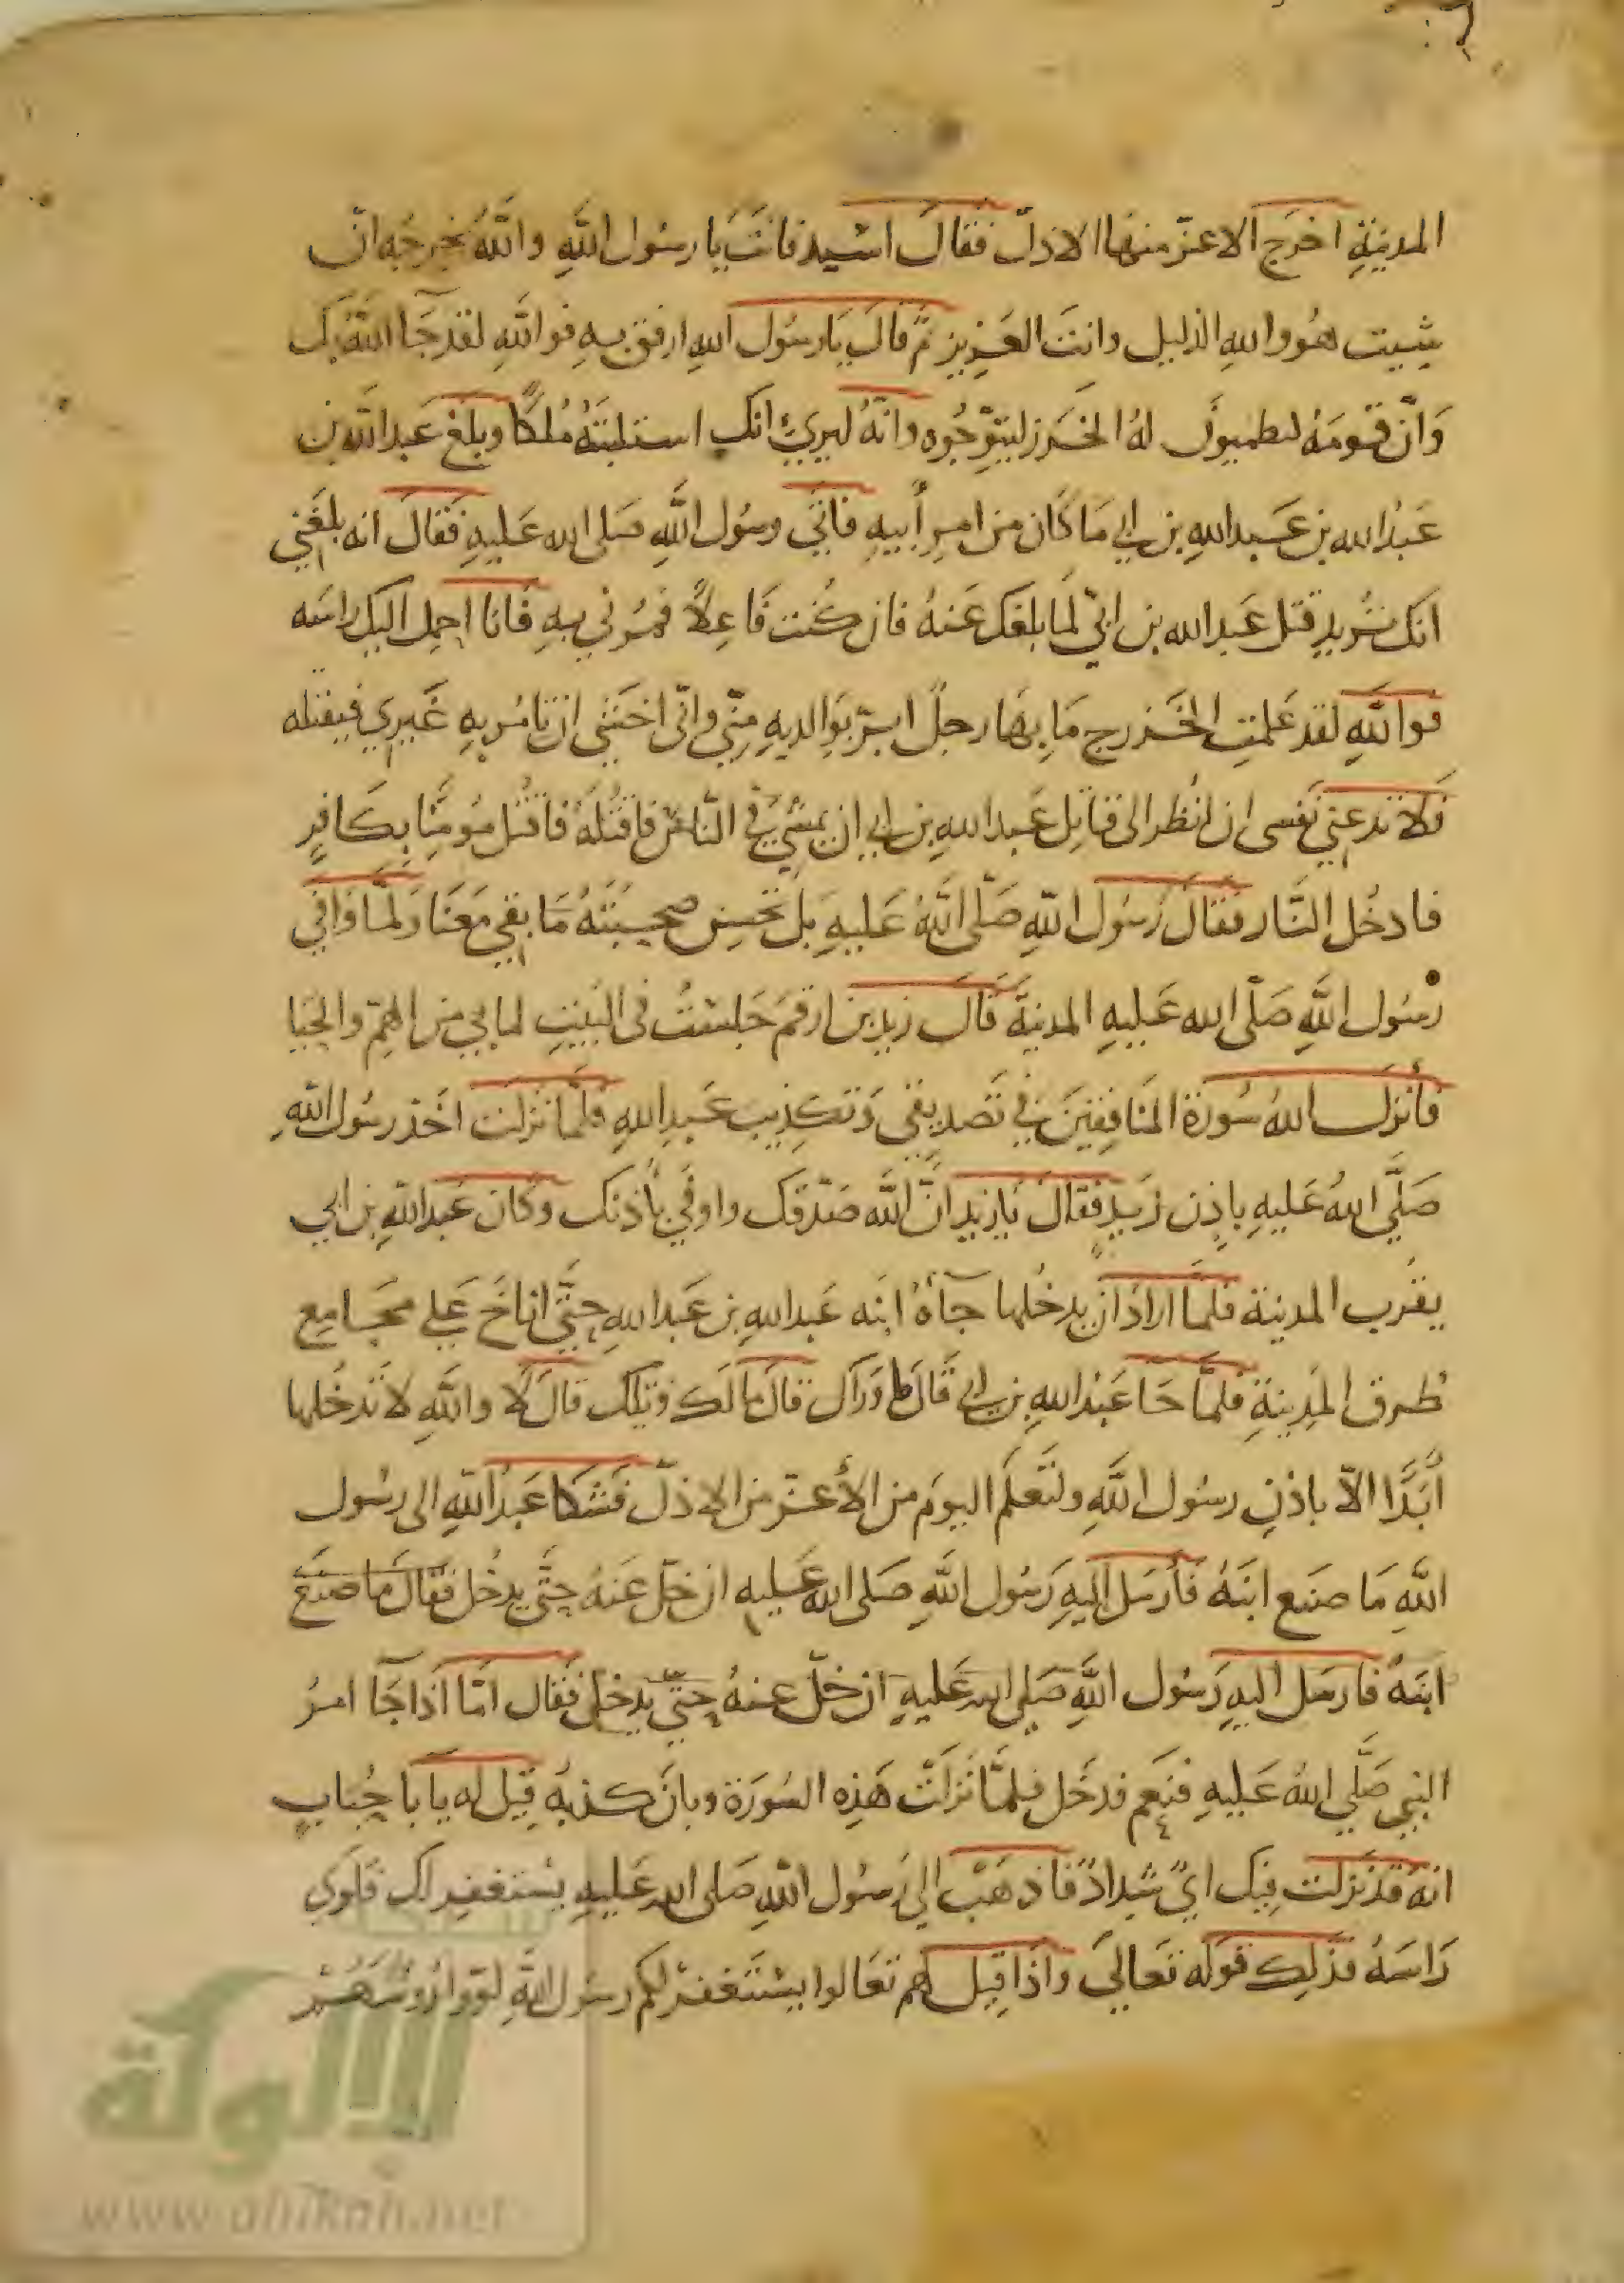 المدينةِ اخرَج الاعزّ منها الاذلّ فقالَ اسَيد فانتَ يا رسُول اللَّهِ واللَّهُ تخرجُه ان
شيت هُو واللهِ الذليل وانتَ العَزيز ثمّ قالَ يَا رسُول اللهِ ارفق بهِ فو اللَّهِ لقد جَا اللَّهُ بك
وَانّ قومَهُ لينظمون لهُ الخَرز ليتوّجُوه وانّهُ ليرى انك استلبتَهُ مُلكًا وبلغ عَبد اللَّه بن
عَبْدُ الله بن عَبد اللهِ بن ابي مَا كَان من امرِ أبيهِ فاتَى رسُول اللَّهِ صَلى الله عَليهِ فقالَ انه بلغَني
انك تُريد قتل عَبد الله بن ابيّ لمَا بلغك عَنهُ فان كُنت فَاعِلاً فمُرني بهِ فَانا احمِل اليك راسَه
فو اللَّهِ لقد عَلمتِ الخَزرج مَا بهَا رجلٌ ابرّ بوَالديهِ منّي وانّى اخشى ان تامُر بهِ غَيري فيقتله
فَلا تدعني نفسى ان انظر الى قاتِل عَبد اللهِ بن ابي ان يمشي في النّاس فاقتُلهُ فاقتُل مؤمنًا بكَافرٍ
فادخُل النَّار فقالَ رَسُول اللّهِ صَلّى اللَّهُ عَليهِ بل تحسِن صحبتَهُ مَا بقي مَعَنَا وَلمّا وَافى
رسُول اللَّهِ صَلّى الله عَليهِ المدينَة قَالَ زيد بن ارقمَ جَلستُ في البَيتِ لما بي من الهمّ والحَيَا
فأنزلَ اللهُ سُورَة المنَافِقينَ في تَصديقي وَتكذِيب عَبدِ اللهِ فلمَّا نزلَت اخَذ رسُول اللَّهِ
صَلَّى اللهُ عَليهِ باذِن زَيدٍ فقالَ يَا زيد انّ اللَّه صَدّقك واوفَى بأذنك وَكَان عَبد اللَّهِ بن ابي
بقُرب المدينة فلمّا ارادَ ان يدخُلها جآهُ ابنه عَبد اللهِ بن عَبد اللهِ حتَّى اناخَ عَلى مجَامِع
طرق المدِينةِ فلمَّا جَا عَبْد اللهِ بن ابي قَالَ ورَآك قالَ مالَك ويلك قالَ لَا واللَّهِ لا تدخُلها
أبَدًا الاّ باذنِ رسُول اللَّهِ ولتَعلَم اليومَ من الأعزّ من الاذلّ فشكا عَبدُ اللَّهِ الى رسُول
اللَّهِ مَا صنَع ابنَهُ فَأرسَل اليهِ رَسُول اللَّهِ صَلى الله عَليهِ ان خلّ عَنهُ حتَّى يدخُل فقالَ مَا صَنعَ
ابنَهُ فارسَل اليهِ رَسُول اللَّهِ صَلى الله عَليهِ ان خلّ عنهُ حتّى يدخل فَقال امّا اذا جَا امرُ
النبي صَلَّى اللهُ عَليهِ فنعَم فدخَل فلمَّا نَزلَت هَذِه السُورَة وبانَ كذبهُ قِيل له يا با حُبَابٍ
انهُ قد نزلَت فِيك ايٌ شِدادٌ فاذهَبْ الى رسُول اللَّهِ صَلى الله عَليهِ يستغفر لك فلوَى
رَاسَهُ فذلِك قَوله تعَالى وَاذا قِيل لهم تعَالوا يستَغفر لكم رسُول اللَّهِ لوّوا رؤسَهُمْ
الالوكة
www.alukah.net